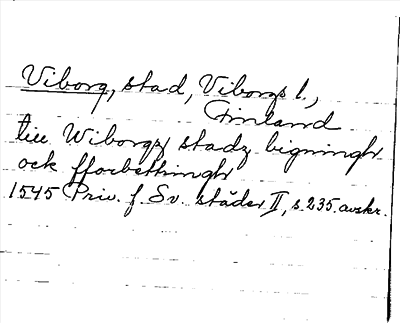 Viborg, stad, Viborgs l.,
Finland
till Wiborgz stadz bigningh
ock fforbettringh
1545 Priv. f. Sv. städer II, s. 235. avskr.